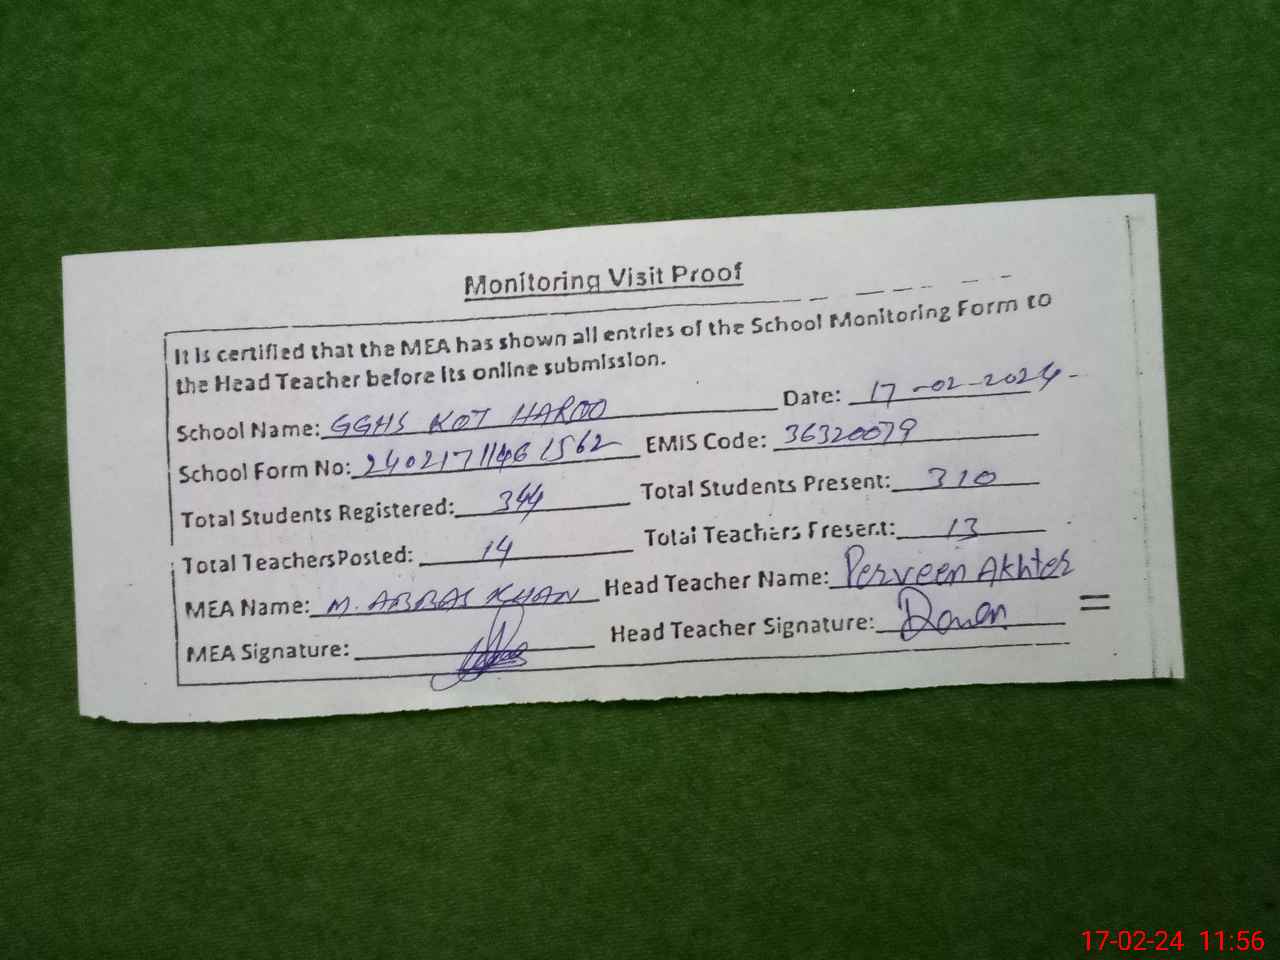 Monitoring Visit Proof
It is certified that the MEA has shown all entries of the School Monitoring Form to
the Head Teacher before its online submission.
School Name: GGHS KOT HAROO Date: 17-02-2024
School Form No: 2402171146 1562 EMIS Code: 36320079
Total Students Registered: 344 Total Students Present: 310
Total Teachers Posted: 14 Total Teachers Present: 13
MEA Name: M. ABBAS KHAN Head Teacher Name: Perveen Akhter
MEA Signature: Head Teacher Signature:
17-02-24 11:56